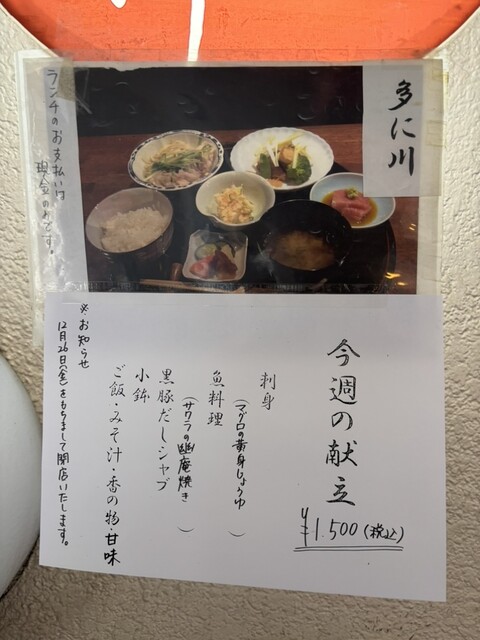 多に川
ランチのお支払いは
現金のみです。
今週の献立
¥1.500(税込)
刺身
(マグロの黄身しょうゆ)
魚料理
(サワラの幽庵焼き)
黒豚だしシャブ
小鉢
ご飯・みそ汁・香の物・甘味
※お知らせ
12月26日(金)をもちまして閉店いたします。